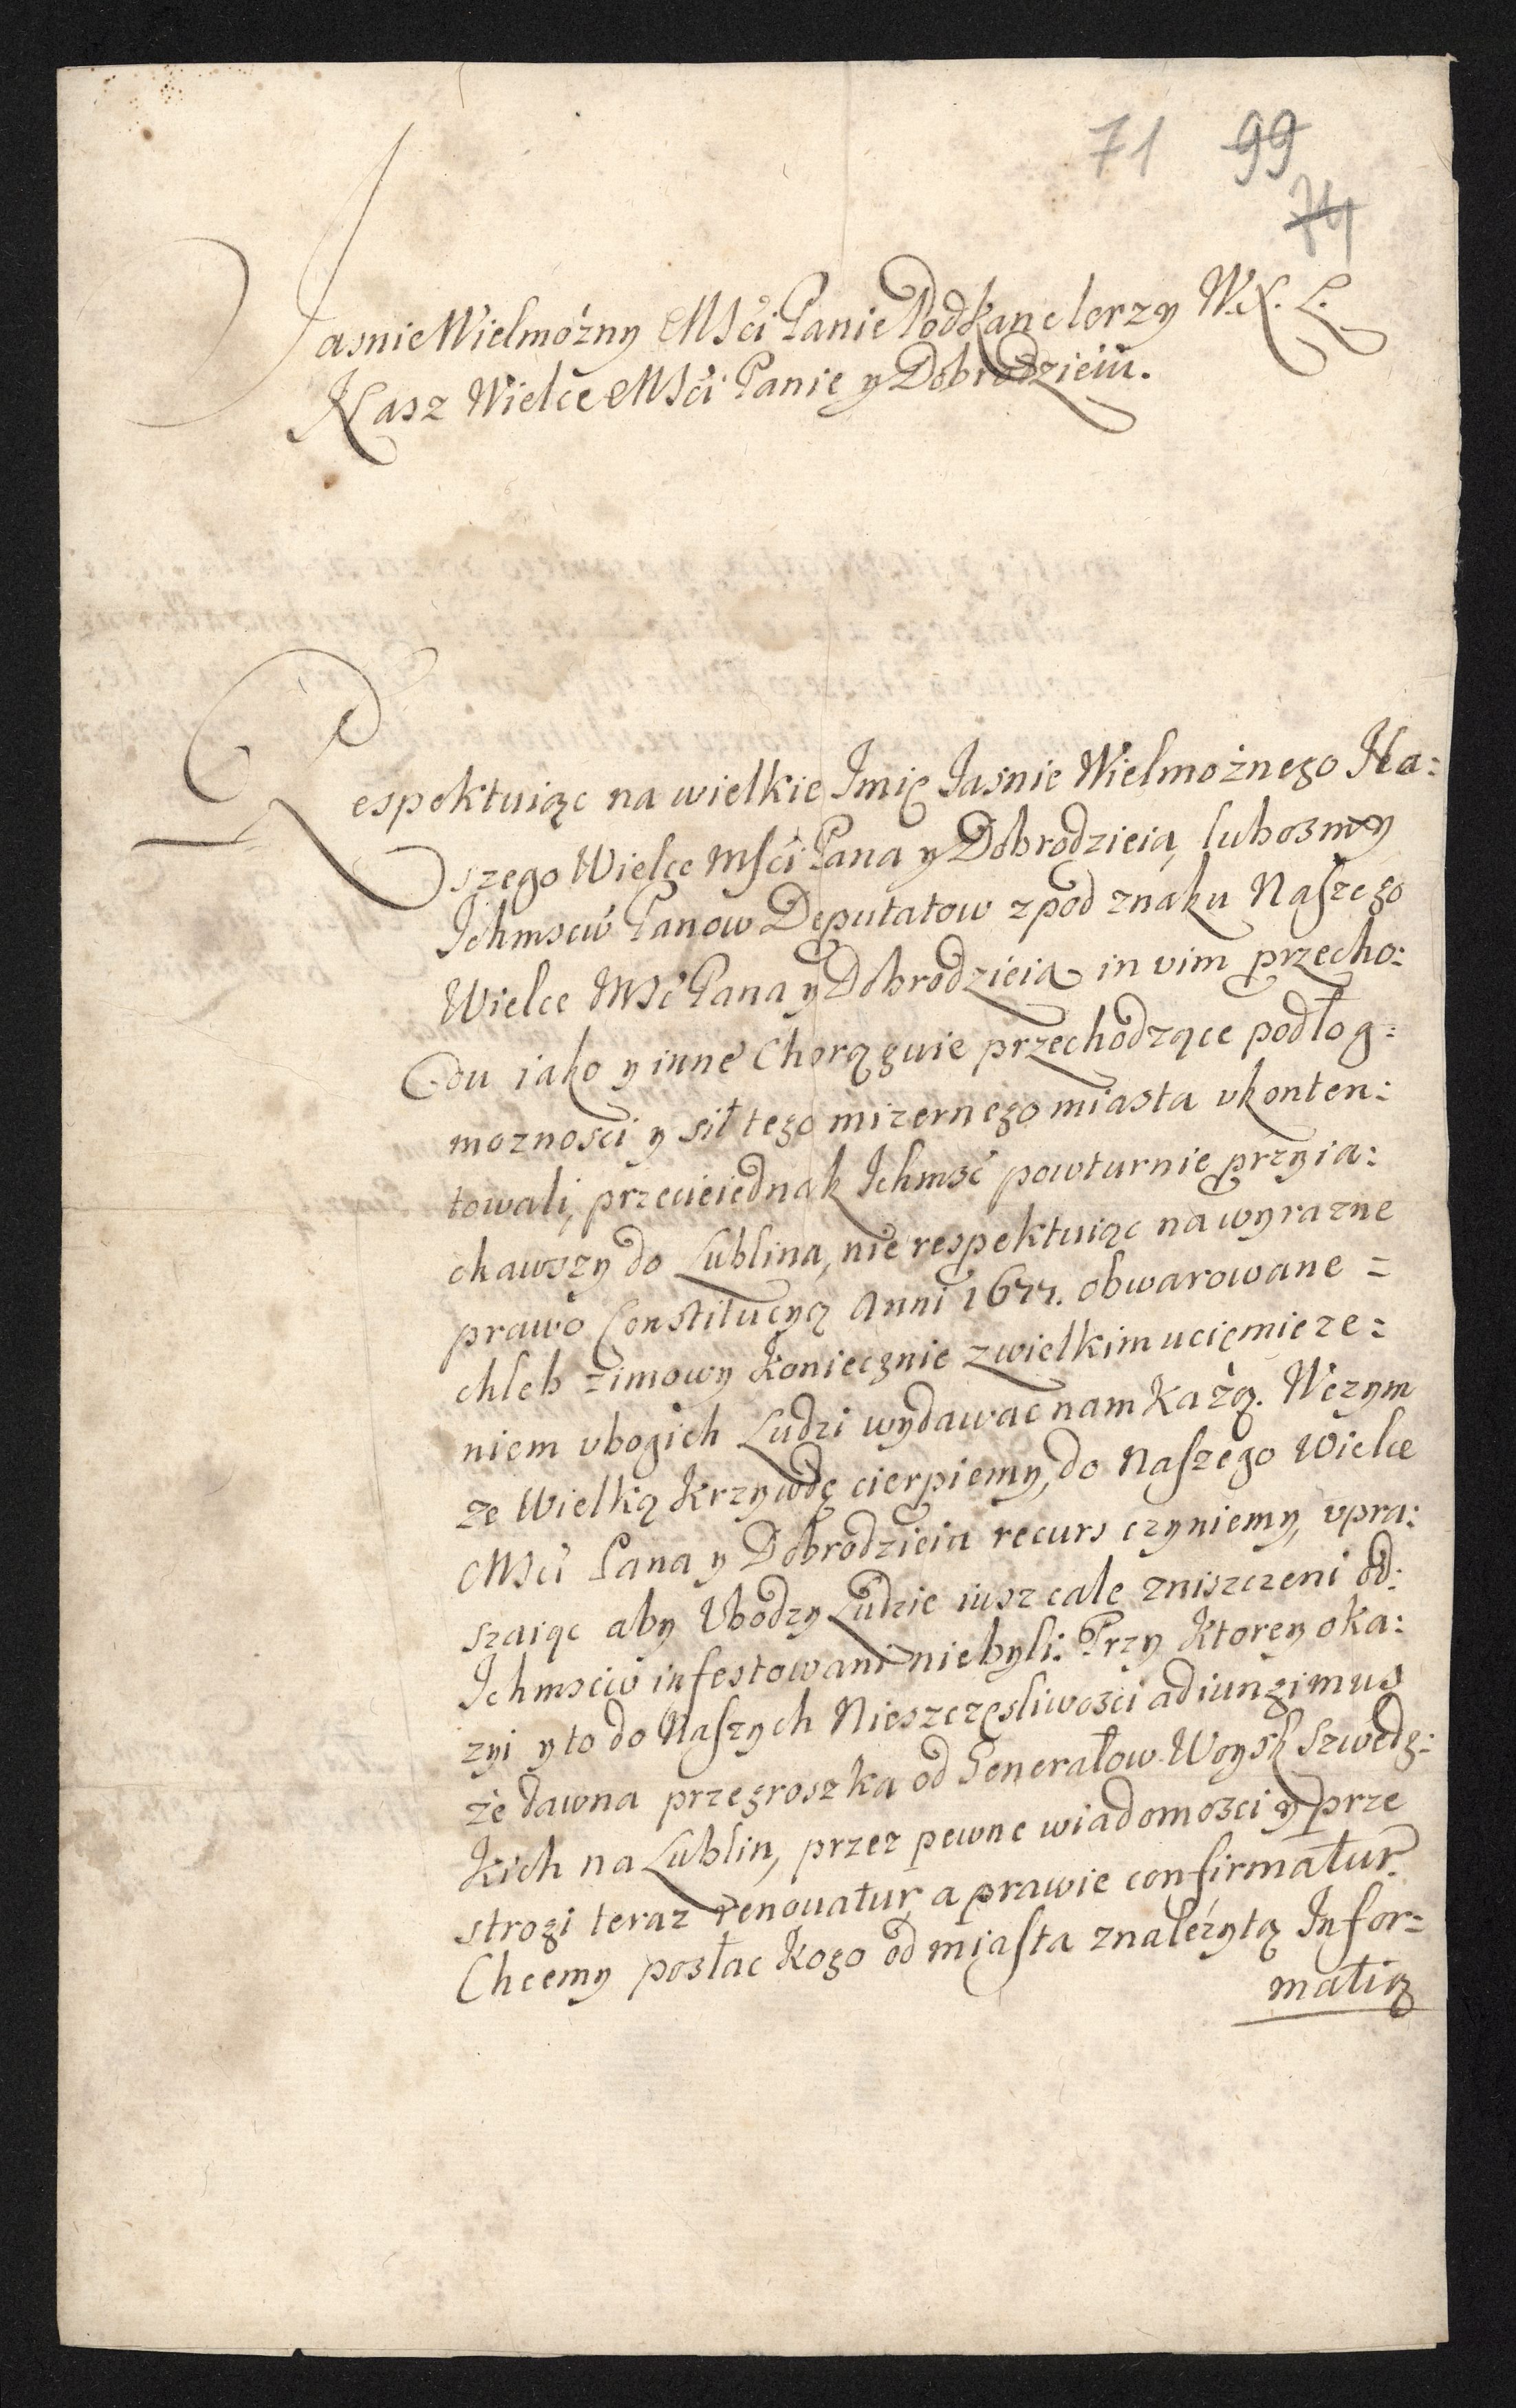 71 99
74
JasnieWielmożny MSci Panie Podkanclerzy W.X. L.
Nasz Wielce MSci Panie y Dobrodzieiu.
Respektuiąc na wielkie Imię Jasnie Wielmożnego Na:
szego Wielce Msci Pana y Dobrodzieia, lubosmy
Ichmsciw Panow Deputatow zpod znaku Naszego
Wielce Msc Pana y Dobrodzieia in vim przecho:
du iako y inne Chorągwie przechodzące podłog:
moznosci y sił tego mizernego miasta vkonten:
towali, przecieiednak Ichmsć powturnie przyia:
chawszy do Lublina, nie respektuiąc na wyrazne
prawo Constitucyą Anni 1677. obwarowane =
chleb zimowy koniecznie zwielkim uciemięze:
niem vbogich Ludzi wydawac nam każą. Wczym
ze Wielką krzywdę cierpiemy, do Naszego Wielce
MSci Pana y Dobrodzieia recurs czyniemy, vpra:
szaiąc aby Vbodzy Ludzie iusz cale zniszczeni od:
Ichmsciw infestowani niebyli. Przy ktorey oka:
zyi y to do Naszych Nieszczęsliwosci adiungimus
że dawna przegroszka od Generałow Woysk Szwedz:
kich na Lublin, przez pewne wiadomosci y prze
strogi teraz renouatur, a prawie confirmatur.
Chcemy posłac kogo od miasta znależytą Infor=
matią